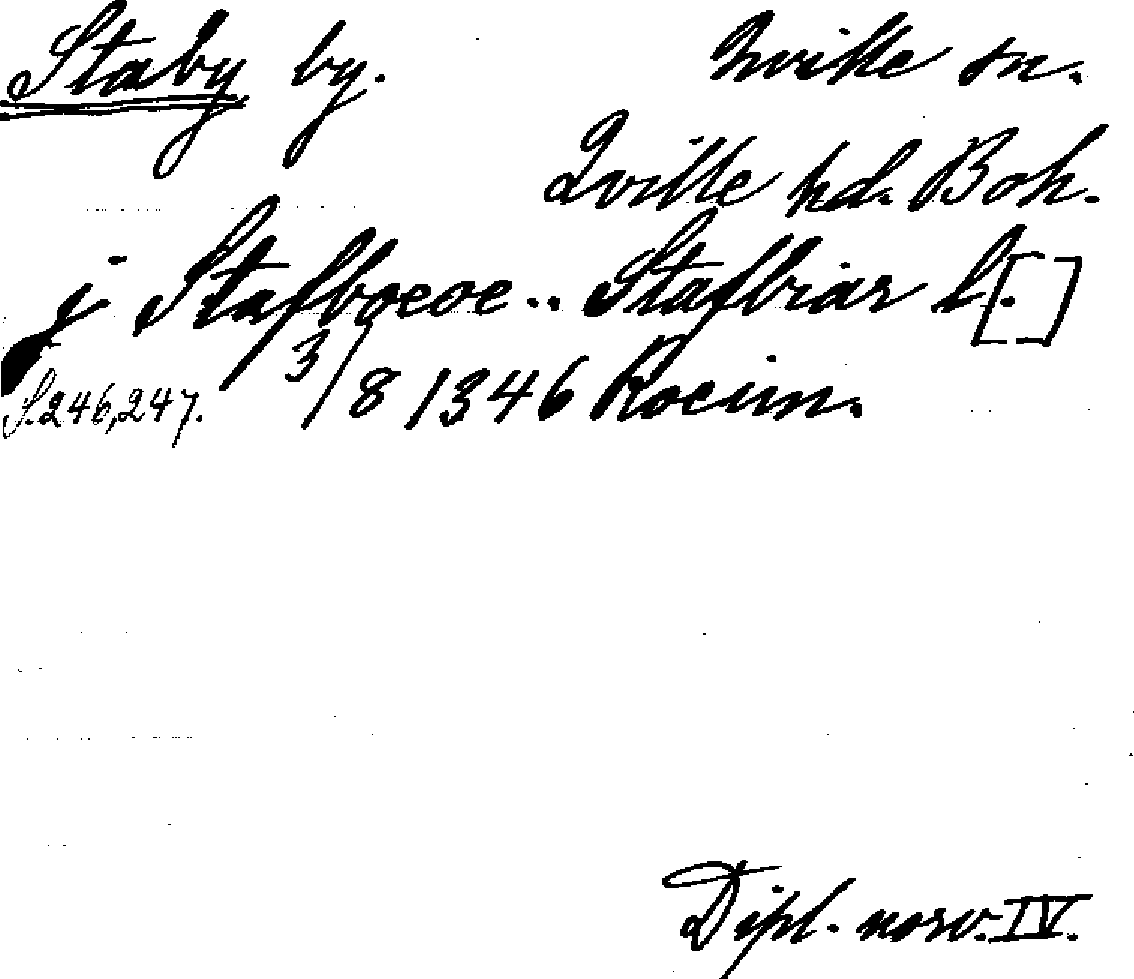 Staby by. Kville sn.
Qville hd. Boh.
j Stafboeoe.. Stafbiar l.[ ]
S.246,247. 3/8 1346 Kocim.
Dipl. norv. IV.